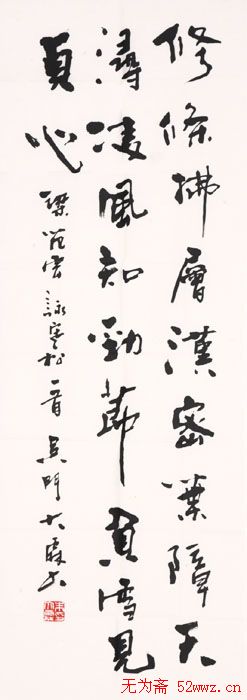 修條拂層漢密葉障天
潯凌風知勁節負雪見
貞心
梁范雲詠寒松一首 吳門大
无为斋 52wwz.cn